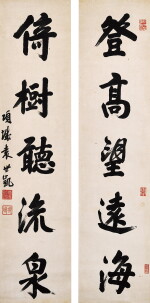 登高望遠海
倚樹聽流泉
項城袁世凱